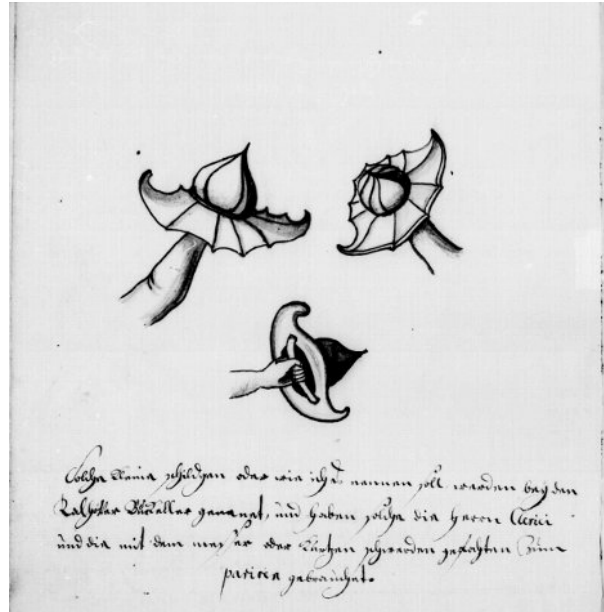 Solche kleine schildgen oder wie ichs nennen soll werden bey den
genanat, und haben solche die Herrn Clerici
und die mit dem messer oder kurtzen schwerden gefochten zum
paticia gebrauchet.